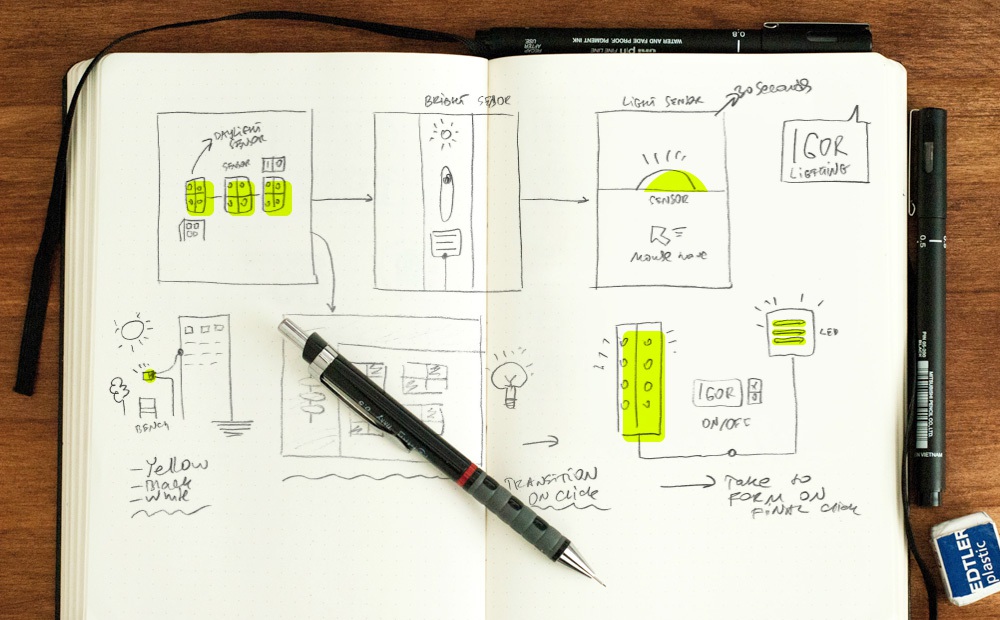 BRIGHT SENSOR
LIGHT SENSOR
30 Seconds
DAYLIGHT
SENSOR
SENSOR
IGOR
LIGHTING
SENSOR
Mouse move
LED
BENCH
IGOR
ON/OFF
- Yellow
- Black
- White
TRANSITION
ON Click
TAKE TO
FORM ON
FINAL Click
pin FINE LINE
WATER AND FADE PROOF, PIGMENT INK
0.8
0.5
MITSUBISHI PENCIL CO., LTD.
VIETNAM
EDTLER
plastic